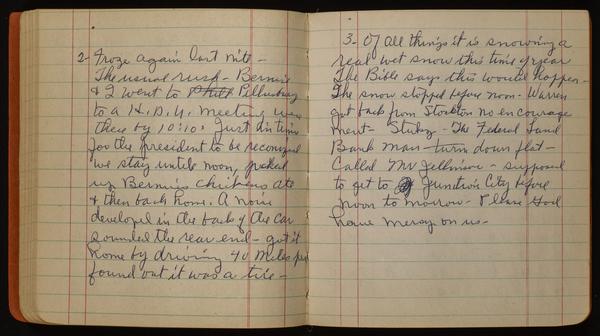 2- Froze again last nite -
The usual rush - Bernice
& I went to Phillipsburg
to a H.D.U. meeting was
there by 10:10. Just in time
for the president to be recognized
we stay until noon, picked
up Bernice's chickens ate
& then back home. A noise
developed in the back of the car
sounded the rear end - got it
home by driving 40 miles per
found out it was a tire -
3- Of all things it is snowing a
real wet snow this time of year
The Bible says this would happen -
The snow stopped before noon - Warren
got back from Stockton no encourage
ment - The Federal Land
Bank man turn down flat -
Called Mr - supposed
to get to Junction City before
noon to morrow - Please God
have mercy on us -